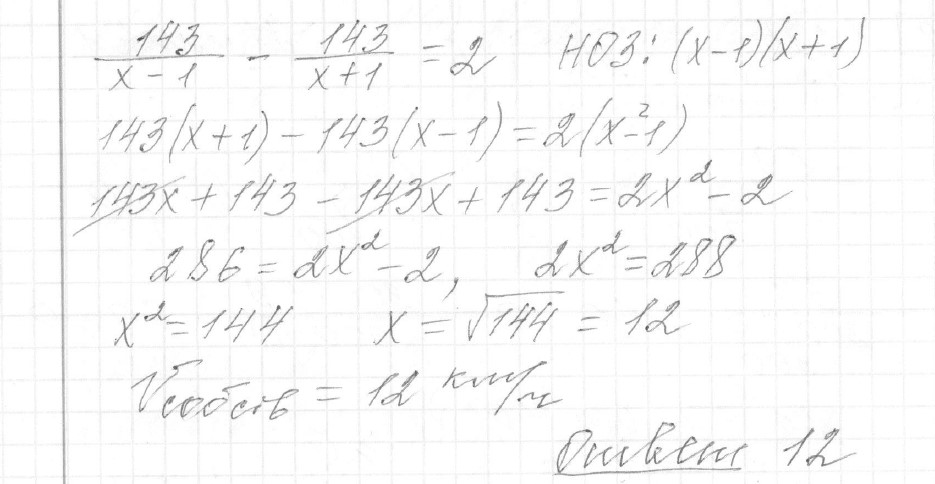 143/(x-1) - 143/(x+1) = 2 НОЗ: (x-1)(x+1)
143(x+1) - 143(x-1) = 2(x²-1)
143x + 143 - 143x + 143 = 2x² - 2
286 = 2x² - 2, 2x² = 288
x² = 144 x = √144 = 12
Vсобств = 12 км/ч
Ответ 12